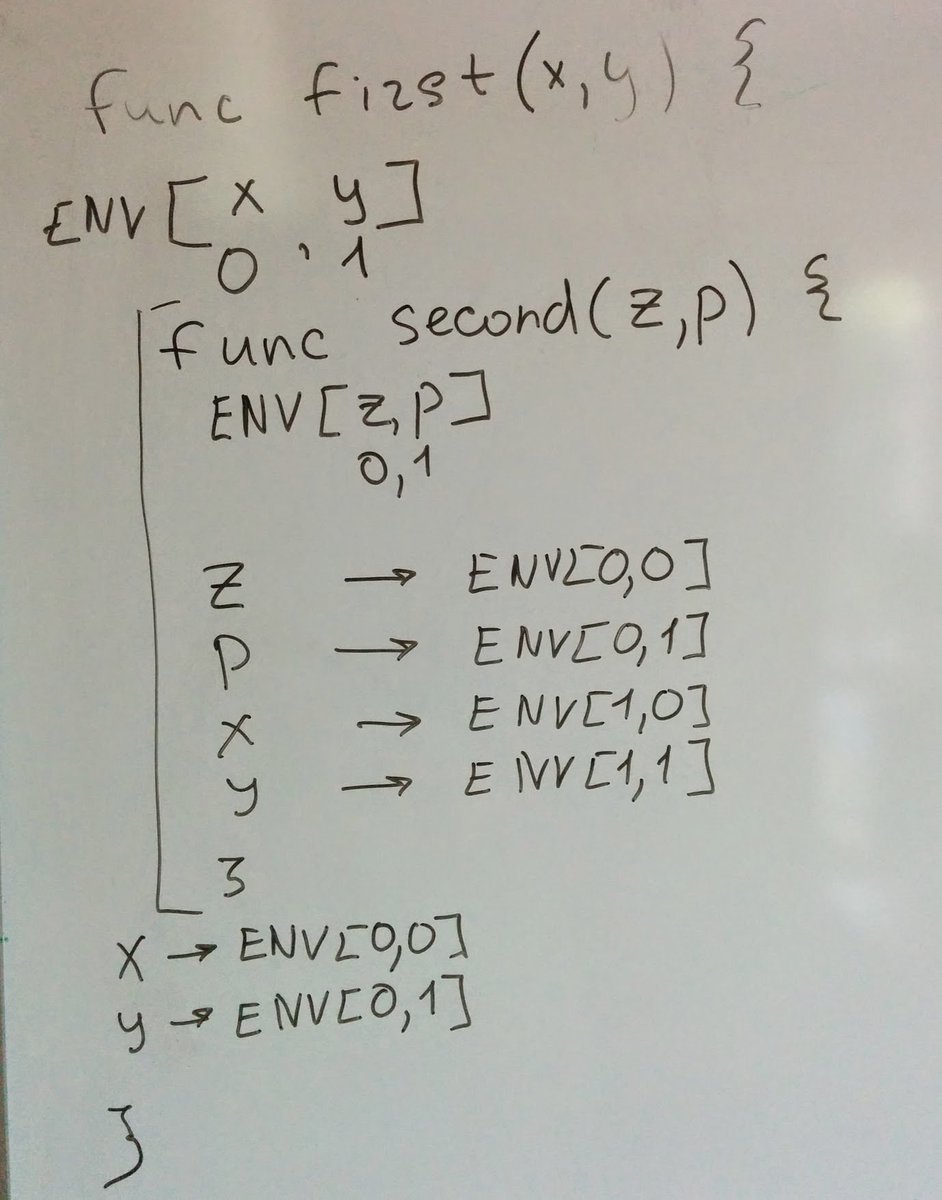 func first(x,y) {
ENV[x y]
0 , 1
func second(z,p) {
ENV[z,p]
0,1
z → ENV[0,0]
p → ENV[0,1]
x → ENV[1,0]
y → ENV[1,1]
}
x → ENV[0,0]
y → ENV[0,1]
}